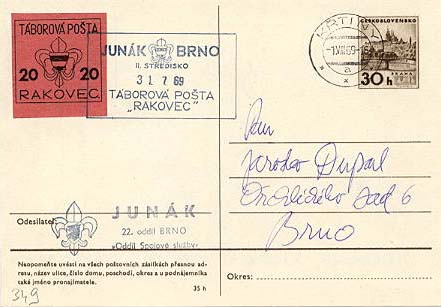 TÁBOROVÁ POŠTA
20 20
RAKOVEC
JUNÁK BRNO
II. STŘEDISKO
31 7 69
TÁBOROVÁ POŠTA
„RAKOVEC"
KŘTINY
ČESKOSLOVENSKO
PRAHA
30 h
Pan
Jaroslav
6
Brno
Odesílatel:
JUNÁK
22. oddíl BRNO
»Oddíl Spojové služby«
Neopomeňte uvésti na všech poštovních zásilkách přesnou ad-
resu, název ulice, číslo domu, poschodí, okres a u podnájemníka
také jméno pronajímatele.
35 h
Okres:
349